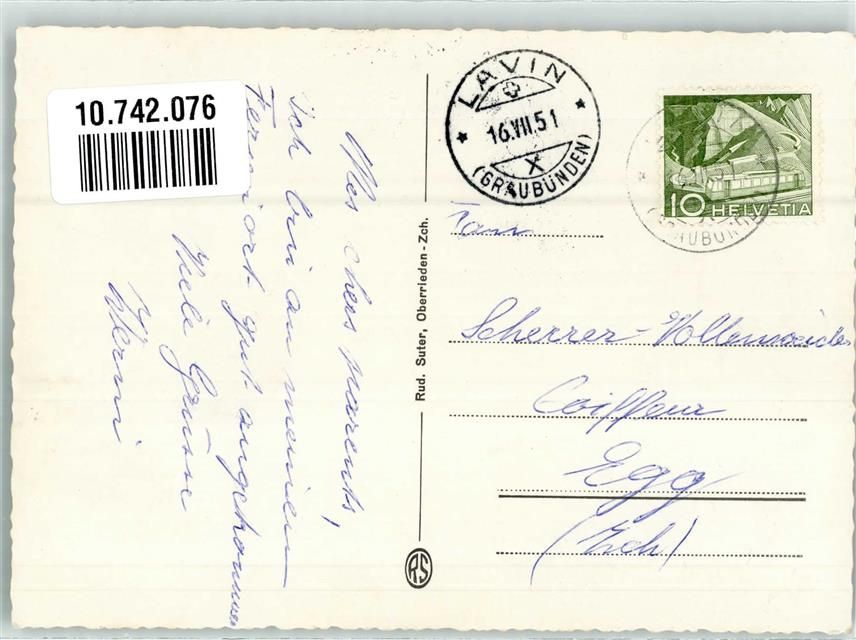 10.742.076
Mes chers parents,
Ich bin an meinem
Ferienort gut angekommen
Viele Grüsse
Werni
Rud. Suter, Oberrieden-Zch.
RS
LAVIN
16.VII.51
X
(GRAUBÜNDEN)
10 HELVETIA
Fam
Scherrer-Vollenweider
Coiffeur
Egg
(Zch)